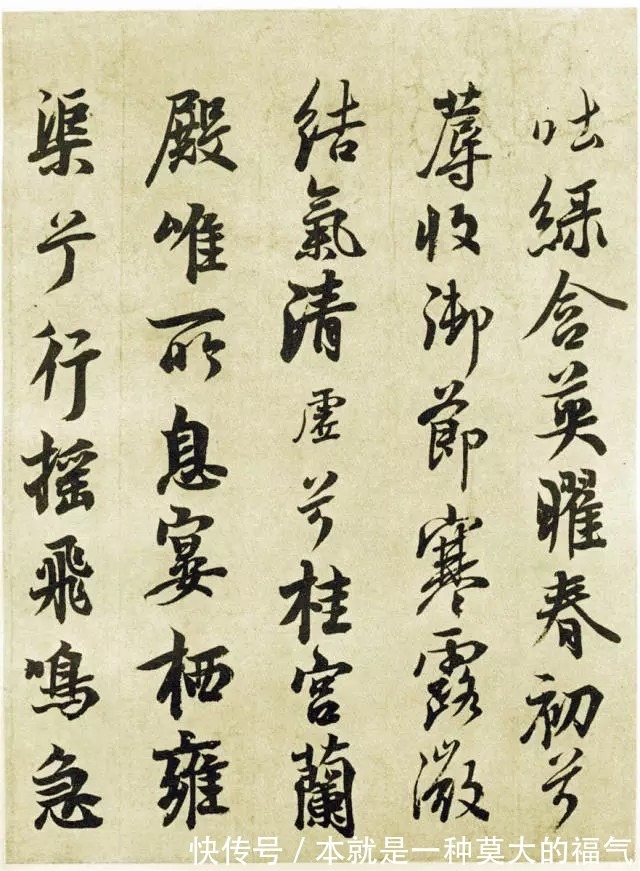 吐緑含英曜春初兮
蓐收御節寒露微
結氣清虛兮桂宮蘭
殿唯所息宴栖雍
渠兮行摇飛鳴急
快传号 / 本就是一种莫大的福气